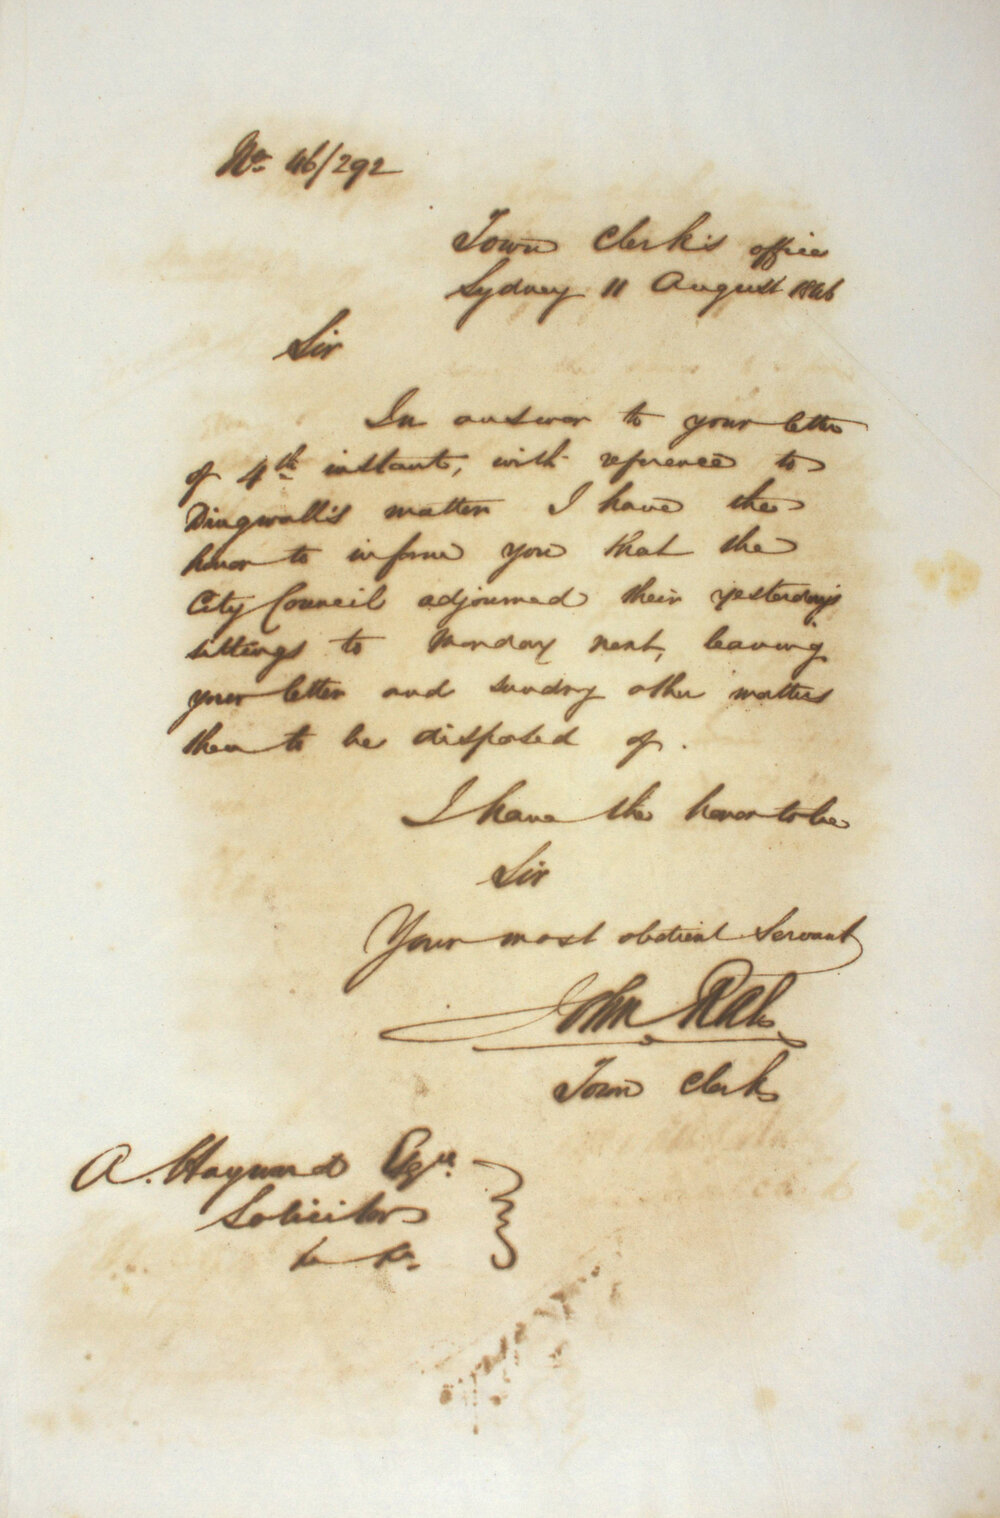 No. 46/292
Town Clerk's office
Sydney 11 August 1846
Sir
In answer to your letter
of 4th instant, with reference to
Dingwall's matter I have the
honor to inform you that the
City Council adjourned their yesterday's
sittings to Monday next, leaving
your letter and sundry other matters
then to be disposed of.
I have the honor to be
Sir
Your most obedient Servant
John Rae
Town Clerk
A. Hayward Esqre.
Solicitor
&c &c.